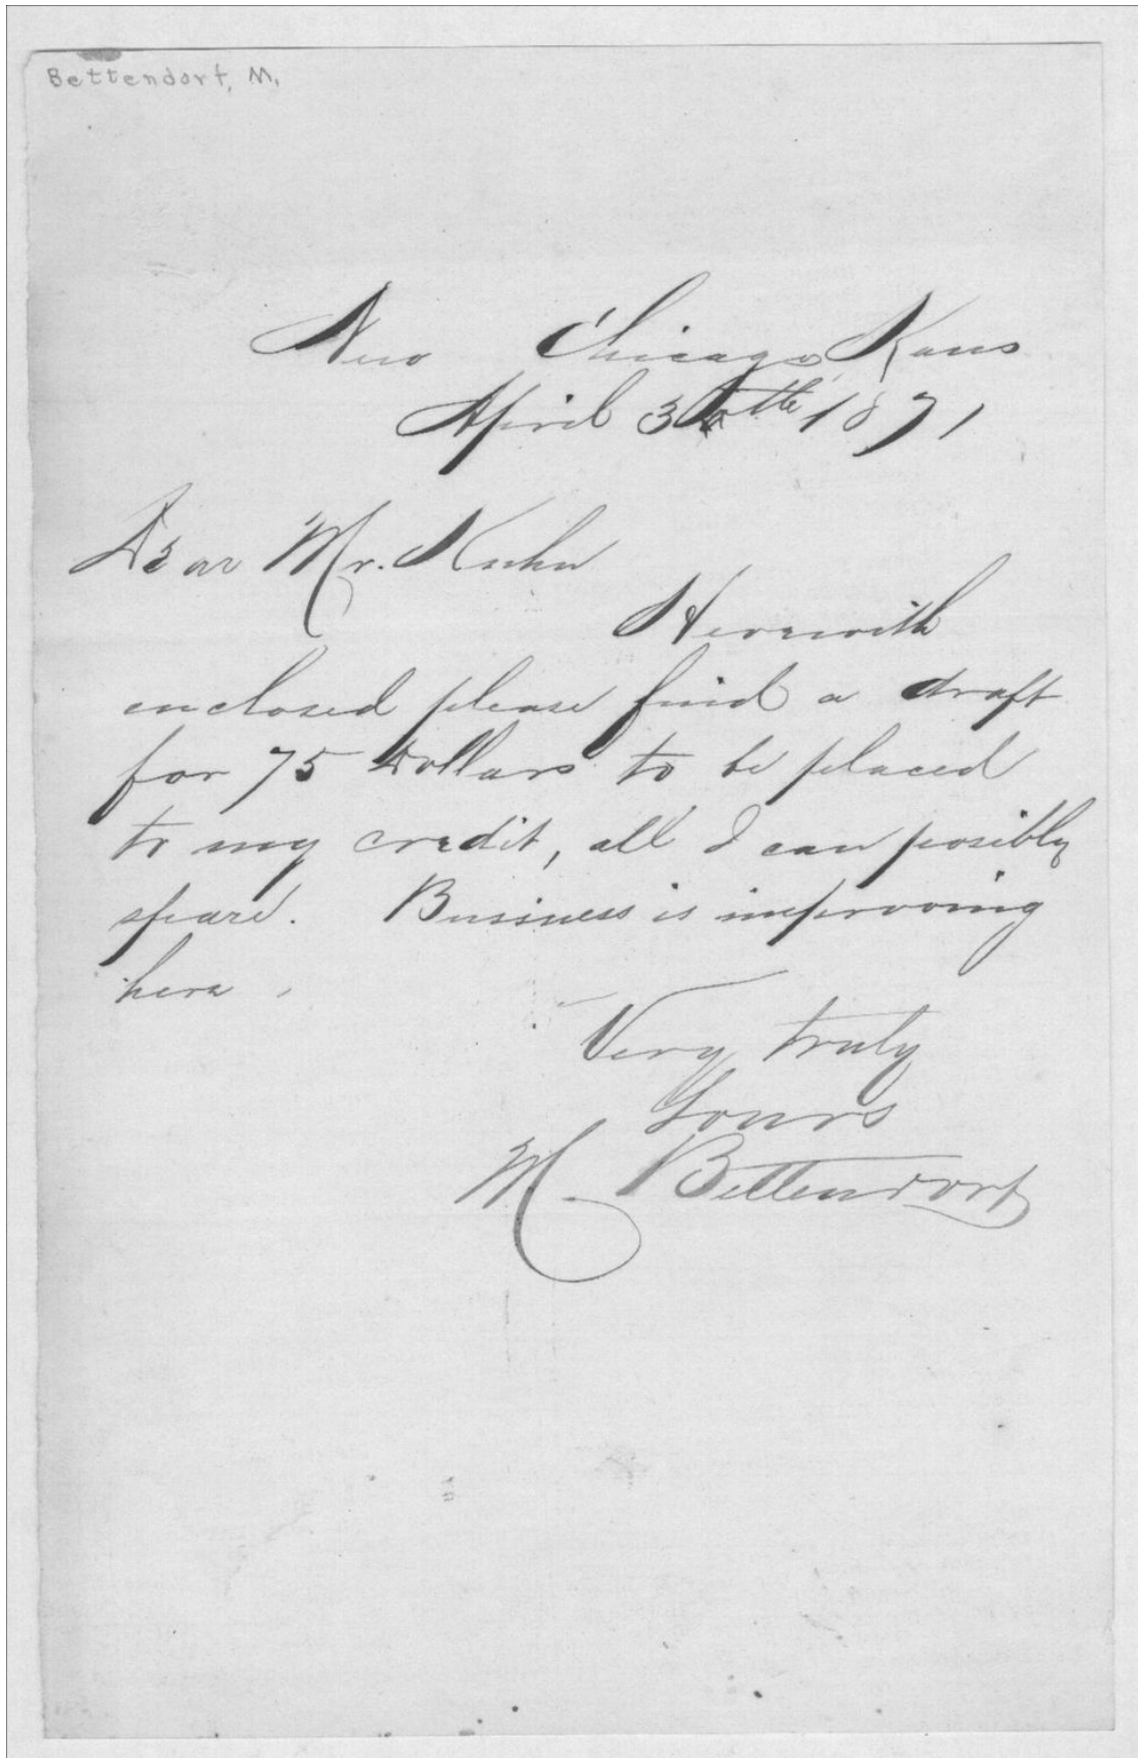 Bettendorf, M.
New Chicago, Kans
April 30th 1871
Dear Mr. Kuhn
Herewith
enclosed please find a draft
for 75 Dollars to be placed
to my credit, all I can posibly
spare. Business is improving
here.
Very truly
Yours
M. Bettendorf